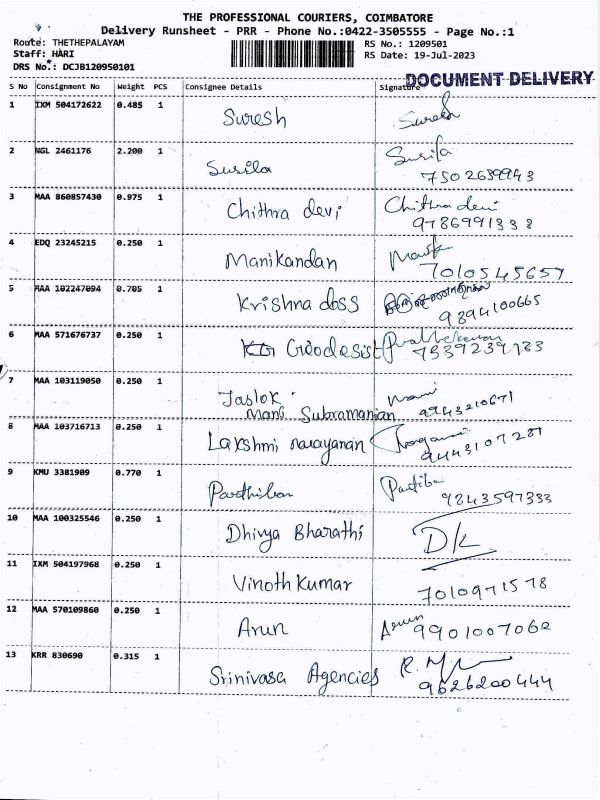 THE PROFESSIONAL COURIERS, COIMBATORE
Delivery Runsheet - PRR - Phone No.:0422-3505555 - Page No.:1
Route: THETHEPALAYAM
RS No.: 1209501
Staff: HARI
RS Date: 19-Jul-2023
DRS No.: DCJB120950101
DOCUMENT DELIVERY
S No Consignment No Weight PCS Consignee Details Signature
1 IXM 504172622 0.485 1 Suresh Suresh
2 NGL 2461176 2.200 1 Susila Susila
7502639943
3 MAA 860857430 0.975 1 Chithra devi Chithra devi
9786991338
4 EDQ 23245215 0.250 1 Manikandan
7010545657
5 MAA 102247094 0.705 1 Krishna doss
9894100665
6 MAA 571676737 0.250 1 Geodesist
7539239183
7 MAA 103119050 0.250 1 Jaslok Mani
Mani Subramanian 9943210671
8 MAA 103716713 0.250 1 Lakshmi narayanan
9443107287
9 KMU 3381909 0.770 1 Parthiban
9843597333
10 MAA 100325546 0.250 1 Dhivya Bharathi DK
11 IXM 504197968 0.250 1 Vinoth Kumar 7010971578
12 MAA 570109860 0.250 1 Arun Arun
9901007062
13 KRR 830690 0.315 1 Srinivasa Agencies
9626200444